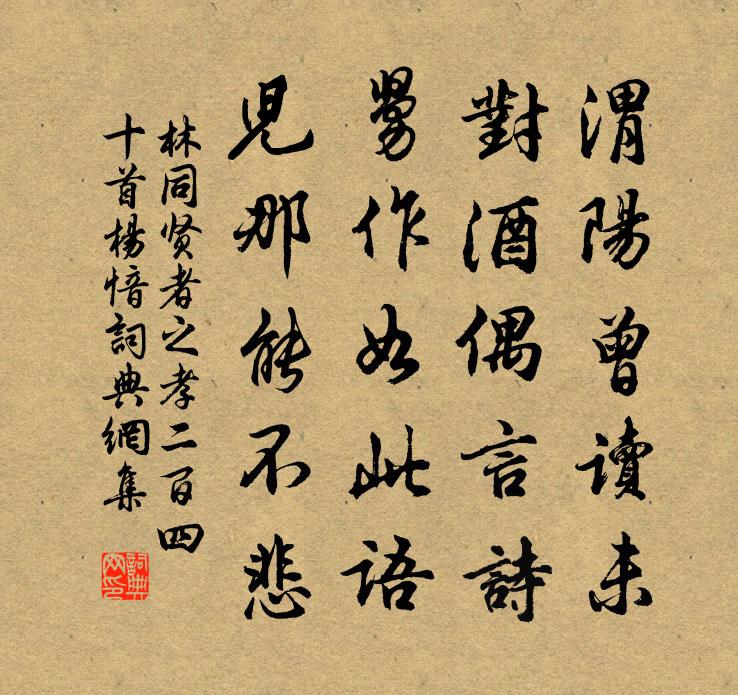 渭陽曾讀未
對酒偶言詩
舅作如此語
児那能不悲
林同贤者之孝二百四
十首楊愔詞典網集
詞典網印